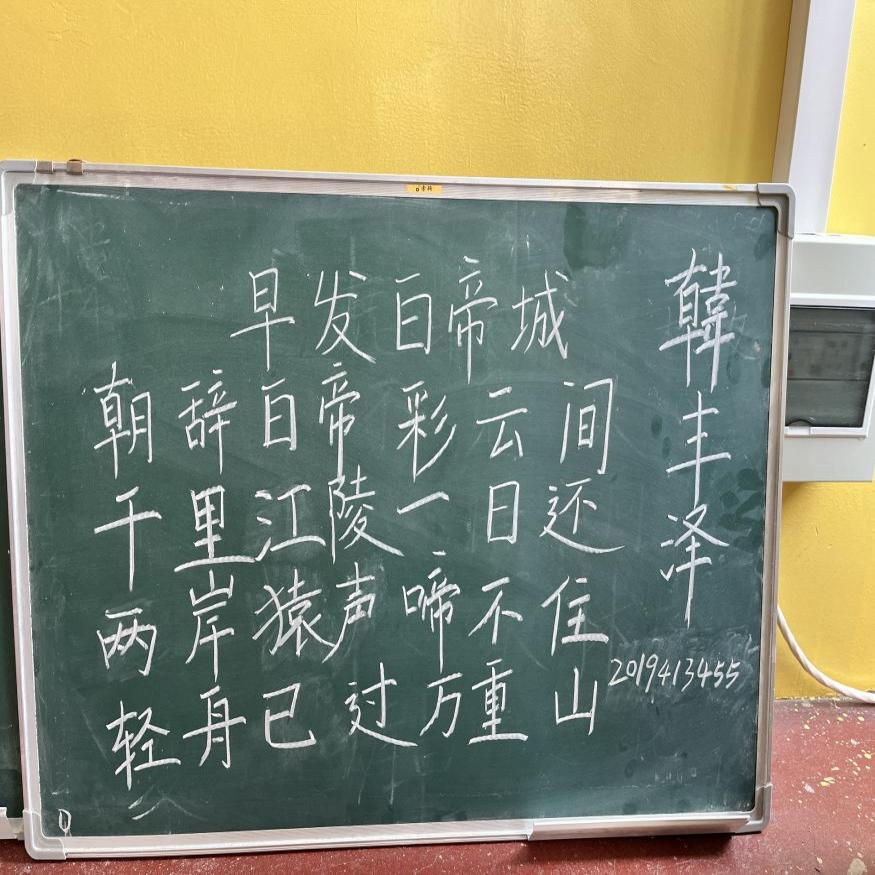 早发白帝城
朝辞白帝彩云间
千里江陵一日还
两岸猿声啼不住
轻舟已过万重山
韓丰泽
2019413455